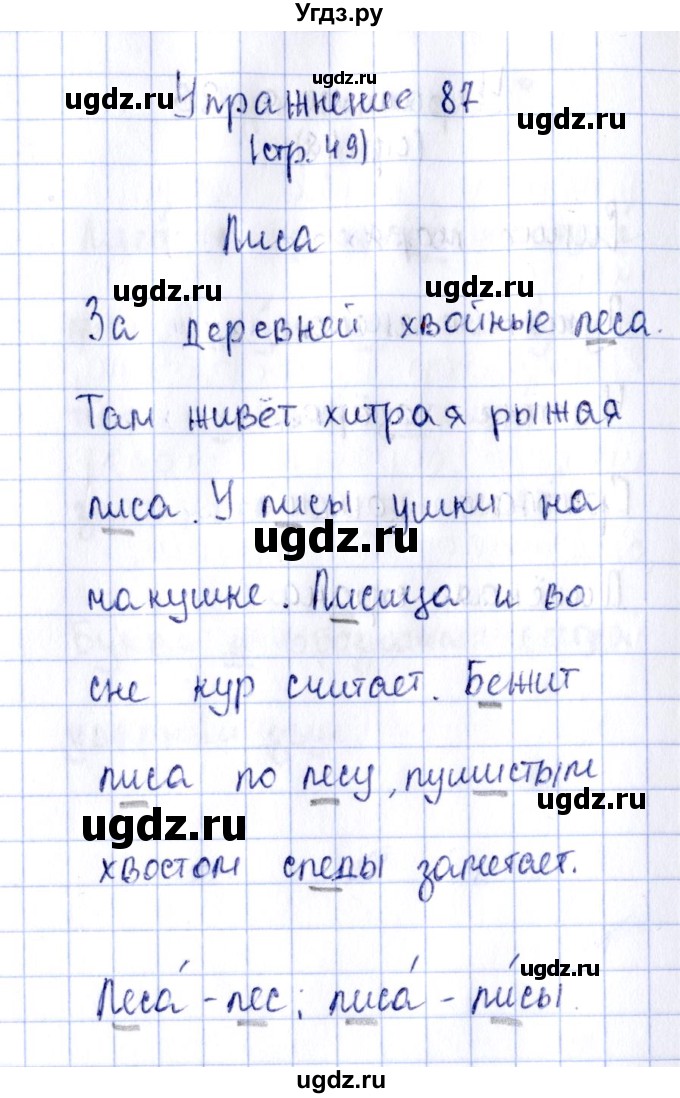 Угдз.ру
ugdz.ru
ugdz.ru
ugdz.ru
Упражнение 87
(стр. 49)
Лиса
ugdz.ru
ugdz.ru
За деревней хвойные леса.
Там живёт хитрая рыжая
лиса. У лисы ушки на
ugdz.ru
макушке. Лисица и во
сне кур считает. Бежит
лиса по лесу, пушистым
ugdz.ru
ugdz.ru
хвостом следы заметает.
ugdz.ru
Леса́ - лес; лиса́ - ли́сы.
ugdz.ru